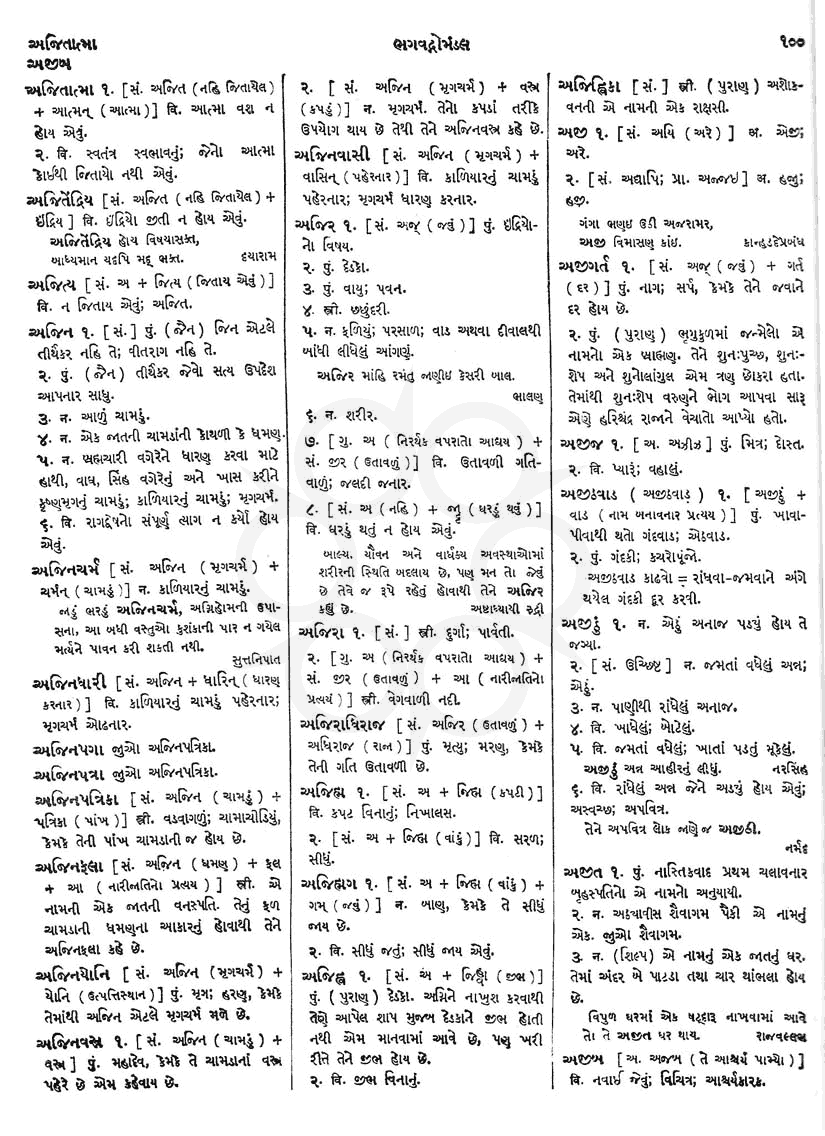 અજિતાત્મા
અજીબ
ભગવદ્ગોમંડલ
૧૦૭
અજિતાત્મા ૧. [ સં. અજિત ( નહિ જિતાયેલ )
+ આત્મન્ ( આત્મા ) ] વિ. આત્મા વશ ન
હોય એવું.
૨. વિ. સ્વતંત્ર સ્વભાવનું; જેનો આત્મા
કોઈથી જિતાયો નથી એવું.
અજિતેંદ્રિય [ સં. અજિત ( નહિ જિતાયેલ ) +
ઇંદ્રિય ] વિ. ઇંદ્રિયો જીતી ન હોય એવું.
અજિતેંદ્રિય હોય વિષયાસક્ત,
બાધ્યમાન યદપિ મદ્ ભક્ત. દયારામ
અજિત્ય [ સં. અ + જિત્ય ( જિતાય એવું ) ]
વિ. ન જિતાય એવું; અજિત.
અજિન ૧. [ સં. ] પું. ( જૈન ) જિન એટલે
તીર્થંકર નહિ તે; વીતરાગ નહિ તે.
૨. પું. ( જૈન ) તીર્થંકર જેવો સત્ય ઉપદેશ
આપનાર સાધુ.
૩. ન. આળું ચામડું.
૪. ન. એક જાતની ચામડાંની કોથળી કે ધમણ.
૫. ન. બ્રહ્મચારી વગેરેને ધારણ કરવા માટે
હાથી, વાઘ, સિંહ વગેરેનું અને ખાસ કરીને
કૃષ્ણમૃગનું ચામડું; કાળિયારનું ચામડું; મૃગચર્મ.
૬. વિ. રાગદ્વેષનો સંપૂર્ણ ત્યાગ ન કર્યો હોય
એવું.
અજિનચર્મ [ સં. અજિન ( મૃગચર્મ ) +
ચર્મન્ ( ચામડું ) ] ન. કાળિયારનું ચામડું.
જાડું ભરડું અજિનચર્મ, અગ્નિહોમની ઉપા-
સના, આ બધી વસ્તુઓ કુશંકાની પાર ન ગયેલ
મર્ત્યને પાવન કરી શકતી નથી.
સુત્તનિપાત
અજિનધારી [ સં. અજિન + ધારિન્ ( ધારણ
કરનાર ) ] વિ. કાળિયારનું ચામડું પહેરનાર;
મૃગચર્મ ઓઢનાર.
અજિનપગા જુઓ અજિનપત્રિકા.
અજિનપત્રા જુઓ અજિનપત્રિકા.
અજિનપત્રિકા [ સં. અજિન ( ચામડું ) +
પત્રિકા ( પાંખ ) ] સ્ત્રી. વડવાગળું; ચામાચોડિયું,
કેમકે તેની પાંખ ચામડાની જ હોય છે.
અજિનફલા [ સં. અજિન ( ધમણ ) + ફલ
+ આ ( નારીજાતિનો પ્રત્યય ) ] સ્ત્રી. એ
નામની એક જાતની વનસ્પતિ. તેનું ફળ
ચામડાની ધમણના આકારનું હોવાથી તેને
અજિનફલા કહે છે.
અજિનયોનિ [ સં. અજિન ( મૃગચર્મ ) +
યોનિ ( ઉત્પત્તિસ્થાન ) ] પું. મૃગ; હરણ, કેમકે
તેમાંથી અજિન એટલે મૃગચર્મ મળે છે.
અજિનવસ્ત્ર ૧. [ સં. અજિન ( ચામડું ) +
વસ્ત્ર ] પું. મહાદેવ, કેમકે તે ચામડાનાં વસ્ત્ર
પહેરે છે એમ કહેવાય છે.
૨. [ સં. અજિન ( મૃગચર્મ ) + વસ્ત્ર
( કપડું ) ] ન. મૃગચર્મ. તેનો કપડાં તરીકે
ઉપયોગ થાય છે તેથી તેને અજિનવસ્ત્ર કહે છે.
અજિનવાસી [ સં. અજિન ( મૃગચર્મ ) +
વાસિન્ ( પહેરનાર ) ] વિ. કાળિયારનું ચામડું
પહેરનાર; મૃગચર્મ ધારણ કરનાર.
અજિર ૧. [ સં. અજ્ ( જવું ) ] પું. ઇંદ્રિયો-
નો વિષય.
૨. પું. દેડકો.
૩. પું. વાયુ; પવન.
૪. સ્ત્રી. છછુંદરી.
૫. ન. ફળિયું; પરસાળ; વાડ અથવા દીવાલથી
બાંધી લીધેલું આંગણું.
અજિર માંહિ રમંતુ જાણીઇ કેસરી બાલ.
ભાલણ
૬. ન. શરીર.
૭. [ ગુ. અ ( નિરર્થક વપરાતો આદ્યય ) +
સં. જીર ( ઉતાવળું ) ] વિ. ઉતાવળી ગતિ-
વાળું; જલદી જનાર.
૮. [ સં. અ ( નહિ ) + જૄ ( ઘરડું થવું ) ]
વિ. ઘરડું થતું ન હોય એવું.
બાલ્ય. યૌવન અને વાર્ધક્ય અવસ્થાઓમાં
શરીરની સ્થિતિ બદલાય છે, પણ મન તો જેવું
છે તેવે જ રૂપે રહેતું હોવાથી તેને અજિર
કહ્યું છે. અષ્ટાધ્યાયી રુદ્રી
અજિરા ૧. [ સં. ] સ્ત્રી. દુર્ગા; પાર્વતી.
૨. [ ગુ. અ ( નિરર્થક વપરાતો આદ્યય ) +
સં. જીર ( ઉતાવળું ) + આ ( નારીજાતિનો
પ્રત્યય ) ] સ્ત્રી. વેગવાળી નદી.
અજિરાધિરાજ [ સં. અજિર ( ઉતાવળું ) +
અધિરાજ ( રાજા ) ] પું. મૃત્યુ; મરણ, કેમકે
તેની ગતિ ઉતાવળી છે.
અજિહ્મ ૧. [ સં. અ + જિહ્મ ( કપટી ) ]
વિ. કપટ વિનાનું; નિખાલસ.
૨. [ સં. અ + જિહ્મ ( વાંકું ) ] વિ. સરળ;
સીધું.
અજિહ્મગ ૧. [ સં. અ + જિહ્મ ( વાંકું ) +
ગમ્ ( જવું ) ] ન. બાણ, કેમકે તે સીધું
જાય છે.
૨. વિ. સીધું જતું; સીધું જાય એવું.
અજિહ્વ ૧. [ સં. અ + જિહ્વા ( જીભ ) ]
પું. ( પુરાણ ) દેડકો. અગ્નિને નાખુશ કરવાથી
તેણે આપેલ શાપ મુજબ દેડકાને જીભ હોતી
નથી એમ માનવામાં આવે છે, પણ ખરી
રીતે તેને જીભ હોય છે.
૨. વિ. જીભ વિનાનું.
અજિહ્વિકા [ સં. ] સ્ત્રી. ( પુરાણ ) અશોક-
વનની એ નામની એક રાક્ષસી.
અજી ૧. [ સં. અયિ ( અરે ) ] અ. એજી;
અરે.
૨. [ સં. અદ્યાપિ; પ્રા. અજ્જઇ ] અ. હજુ;
હજી.
ગંગા ભણઇ ઉડી અજરામર,
અજી વિમાસણ કાંઇ. કાન્હડદેપ્રબંધ
અજીગર્ત ૧. [ સં. અજ્ ( જવું ) + ગર્ત
( દર ) ] પું. નાગ; સર્પ, કેમકે તેને જવાને
દર હોય છે.
૨. પું. ( પુરાણ ) ભૃગુકુળમાં જન્મેલો એ
નામનો એક બ્રાહ્મણ. તેને શુનઃપુચ્છ, શુનઃ-
શેપ અને શુનોલાંગુલ એમ ત્રણ છોકરા હતા.
તેમાંથી શુનઃશેપ વરુણને ભોગ આપવા સારૂ
એણે હરિશ્ચંદ્ર રાજાને વેચાતો આપ્યો હતો.
અજીજ ૧. [ અ. અઝીઝ ] પું. મિત્ર; દોસ્ત.
૨. વિ. પ્યારૂં; વહાલું.
અજીઠવાડ ( અજીઠવાડ ) ૧. [ અજીઠું +
વાડ ( નામ બનાવનાર પ્રત્યય ) ] પું. ખાવા-
પીવાથી થતો ગંદવાડ; એઠવાડ.
૨. પું. ગંદકી; કચરોપૂંજો.
અજીઠવાડ કાઢવો = રાંધવા-જમવાને અંગે
થયેલ ગંદકી દૂર કરવી.
અજીઠું ૧. ન. એઠું અનાજ પડ્યું હોય તે
જગ્યા.
૨. [ સં. ઉચ્છિષ્ટ ] ન. જમતાં વધેલું અન્ન;
એઠું.
૩. ન. પાણીથી રાંધેલું અનાજ.
૪. વિ. ખાધેલું; બોટેલું.
૫. વિ. જમતાં વધેલું; ખાતાં પડતું મૂકેલું.
અજીઠું અન્ન આહીરનું લીધું. નરસિંહ
૬. વિ. રાંધેલું અન્ન જેને અડક્યું હોય એવું;
અસ્વચ્છ; અપવિત્ર.
તેને અપવિત્ર લોક જાણે જ અજીઠી.
નર્મદ
અજીત ૧. પું. નાસ્તિકવાદ પ્રથમ ચલાવનાર
બૃહસ્પતિનો એ નામનો અનુયાયી.
૨. ન. અઠ્યાવીસ શૈવાગમ પૈકી એ નામનું
એક. જુઓ શૈવાગમ.
૩. ન. ( શિલ્પ ) એ નામનું એક જાતનું ઘર.
તેમાં અંદર બે પાટડા તથા ચાર થાંભલા હોય
છે.
વિપુળ ઘરમાં એક ષટ્દારૂ નાખવામાં આવે
તો તે અજીત ઘર થાય. રાજવલ્લભ
અજીબ [ અ. અજબ ( તે આશ્ચર્ય પામ્યો ) ]
વિ. નવાઈ જેવું; વિચિત્ર; આશ્ચર્યકારક.